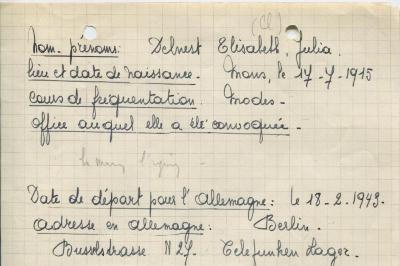 (Cl)
Nom. prénoms: Delnest Elisabeth, Julia.
lieu et date de naissance. Mons, le 17-7-1915
cours de fréquentation. Modes.
office auquel elle a été convoquée.
Date de départ pour l'Allemagne: le 18-2-1943.
adresse en allemagne: Berlin.
N 27. Telefunken Lager.